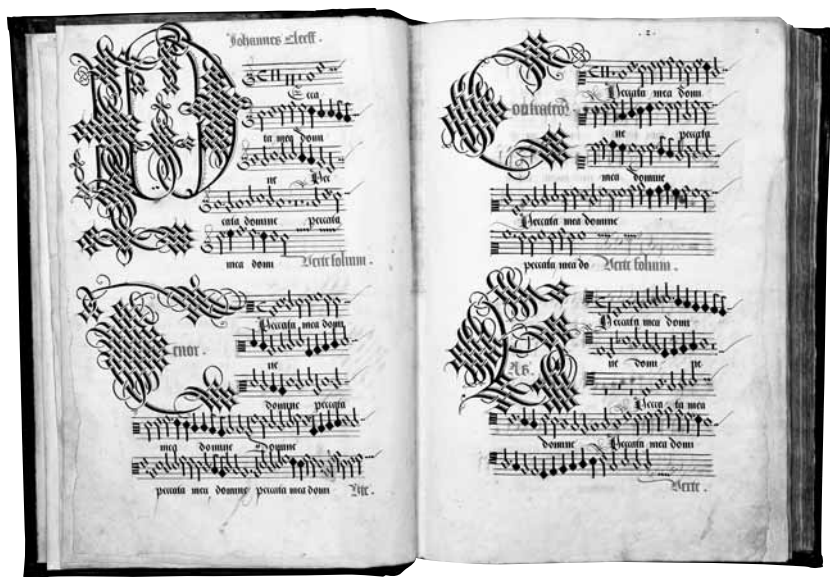 Johannes Cleeff .
P Ecca
ta mea domi
ne Pec
cata domine peccata
mea domi Verte folium .
Tenor .
Peccata mea domi
ne
domine peccata
mea domine Domine
peccata mea domine peccata mea domi
. 2 .
Peccata mea domi
ne peccata
mea domine
Peccata mea domine
peccata mea do Verte folium .
Peccata mea domi
ne domi ne
BAs .
Pecca ta mea
domine Peccata mea domi
Verte .